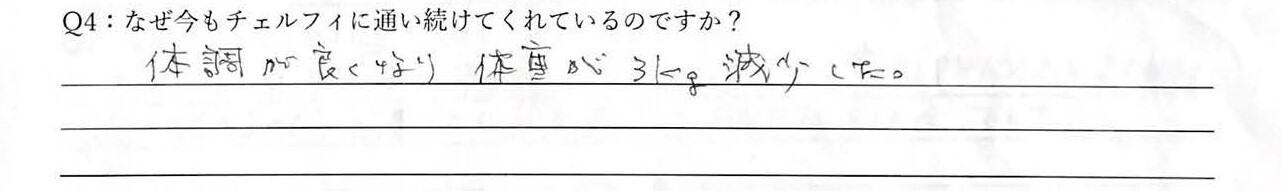 Q4：なぜ今もチェルフィに通い続けてくれているのですか？
体調が良くなり 体重が 3kg 減少した。